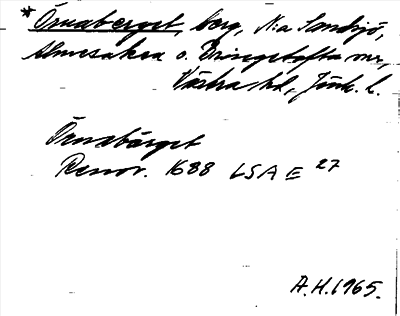 * Örnaberget, berg, N:a Sandsjö,
Almesåkra o. Bringetofta snr,
Västra hd, Jönk. l.
Örnabärget
Renov. 1688 LSA E 27
A.H. 1965.